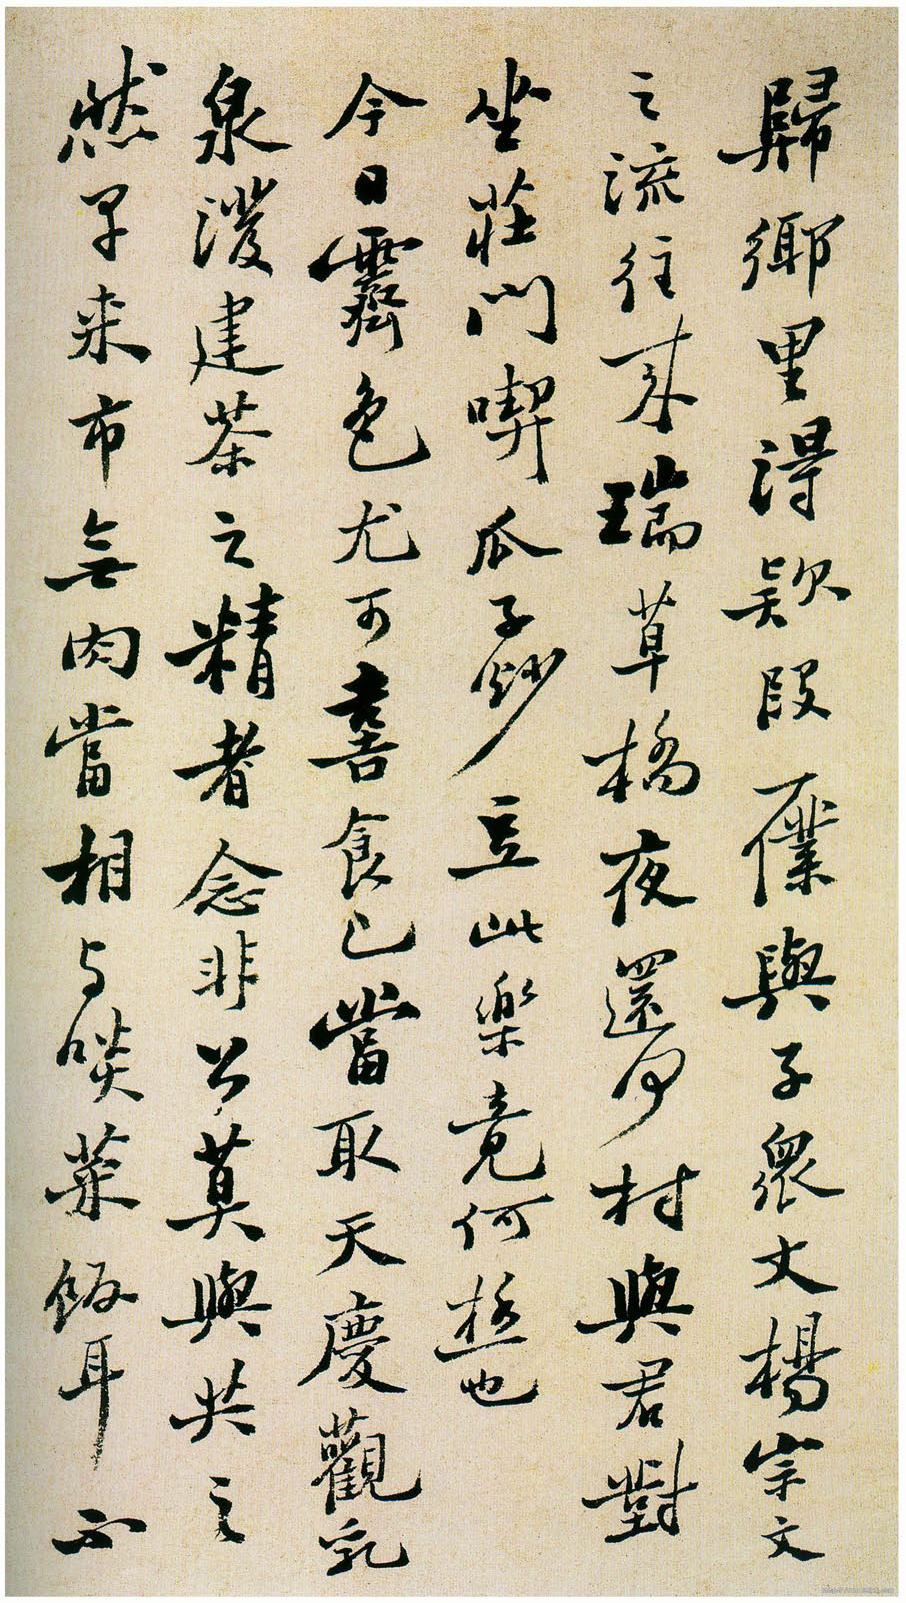 歸鄉里得款段一僕與子衆丈楊宗文
之流往來瑞草橋夜還何村與君對
坐莊門喫瓜子炒豆此樂竟何極也
今日霽色尤可喜食已當取天慶觀乳
泉潑建茶之精者念非公莫與共之
然早來市無肉當相与啖菜飯耳不